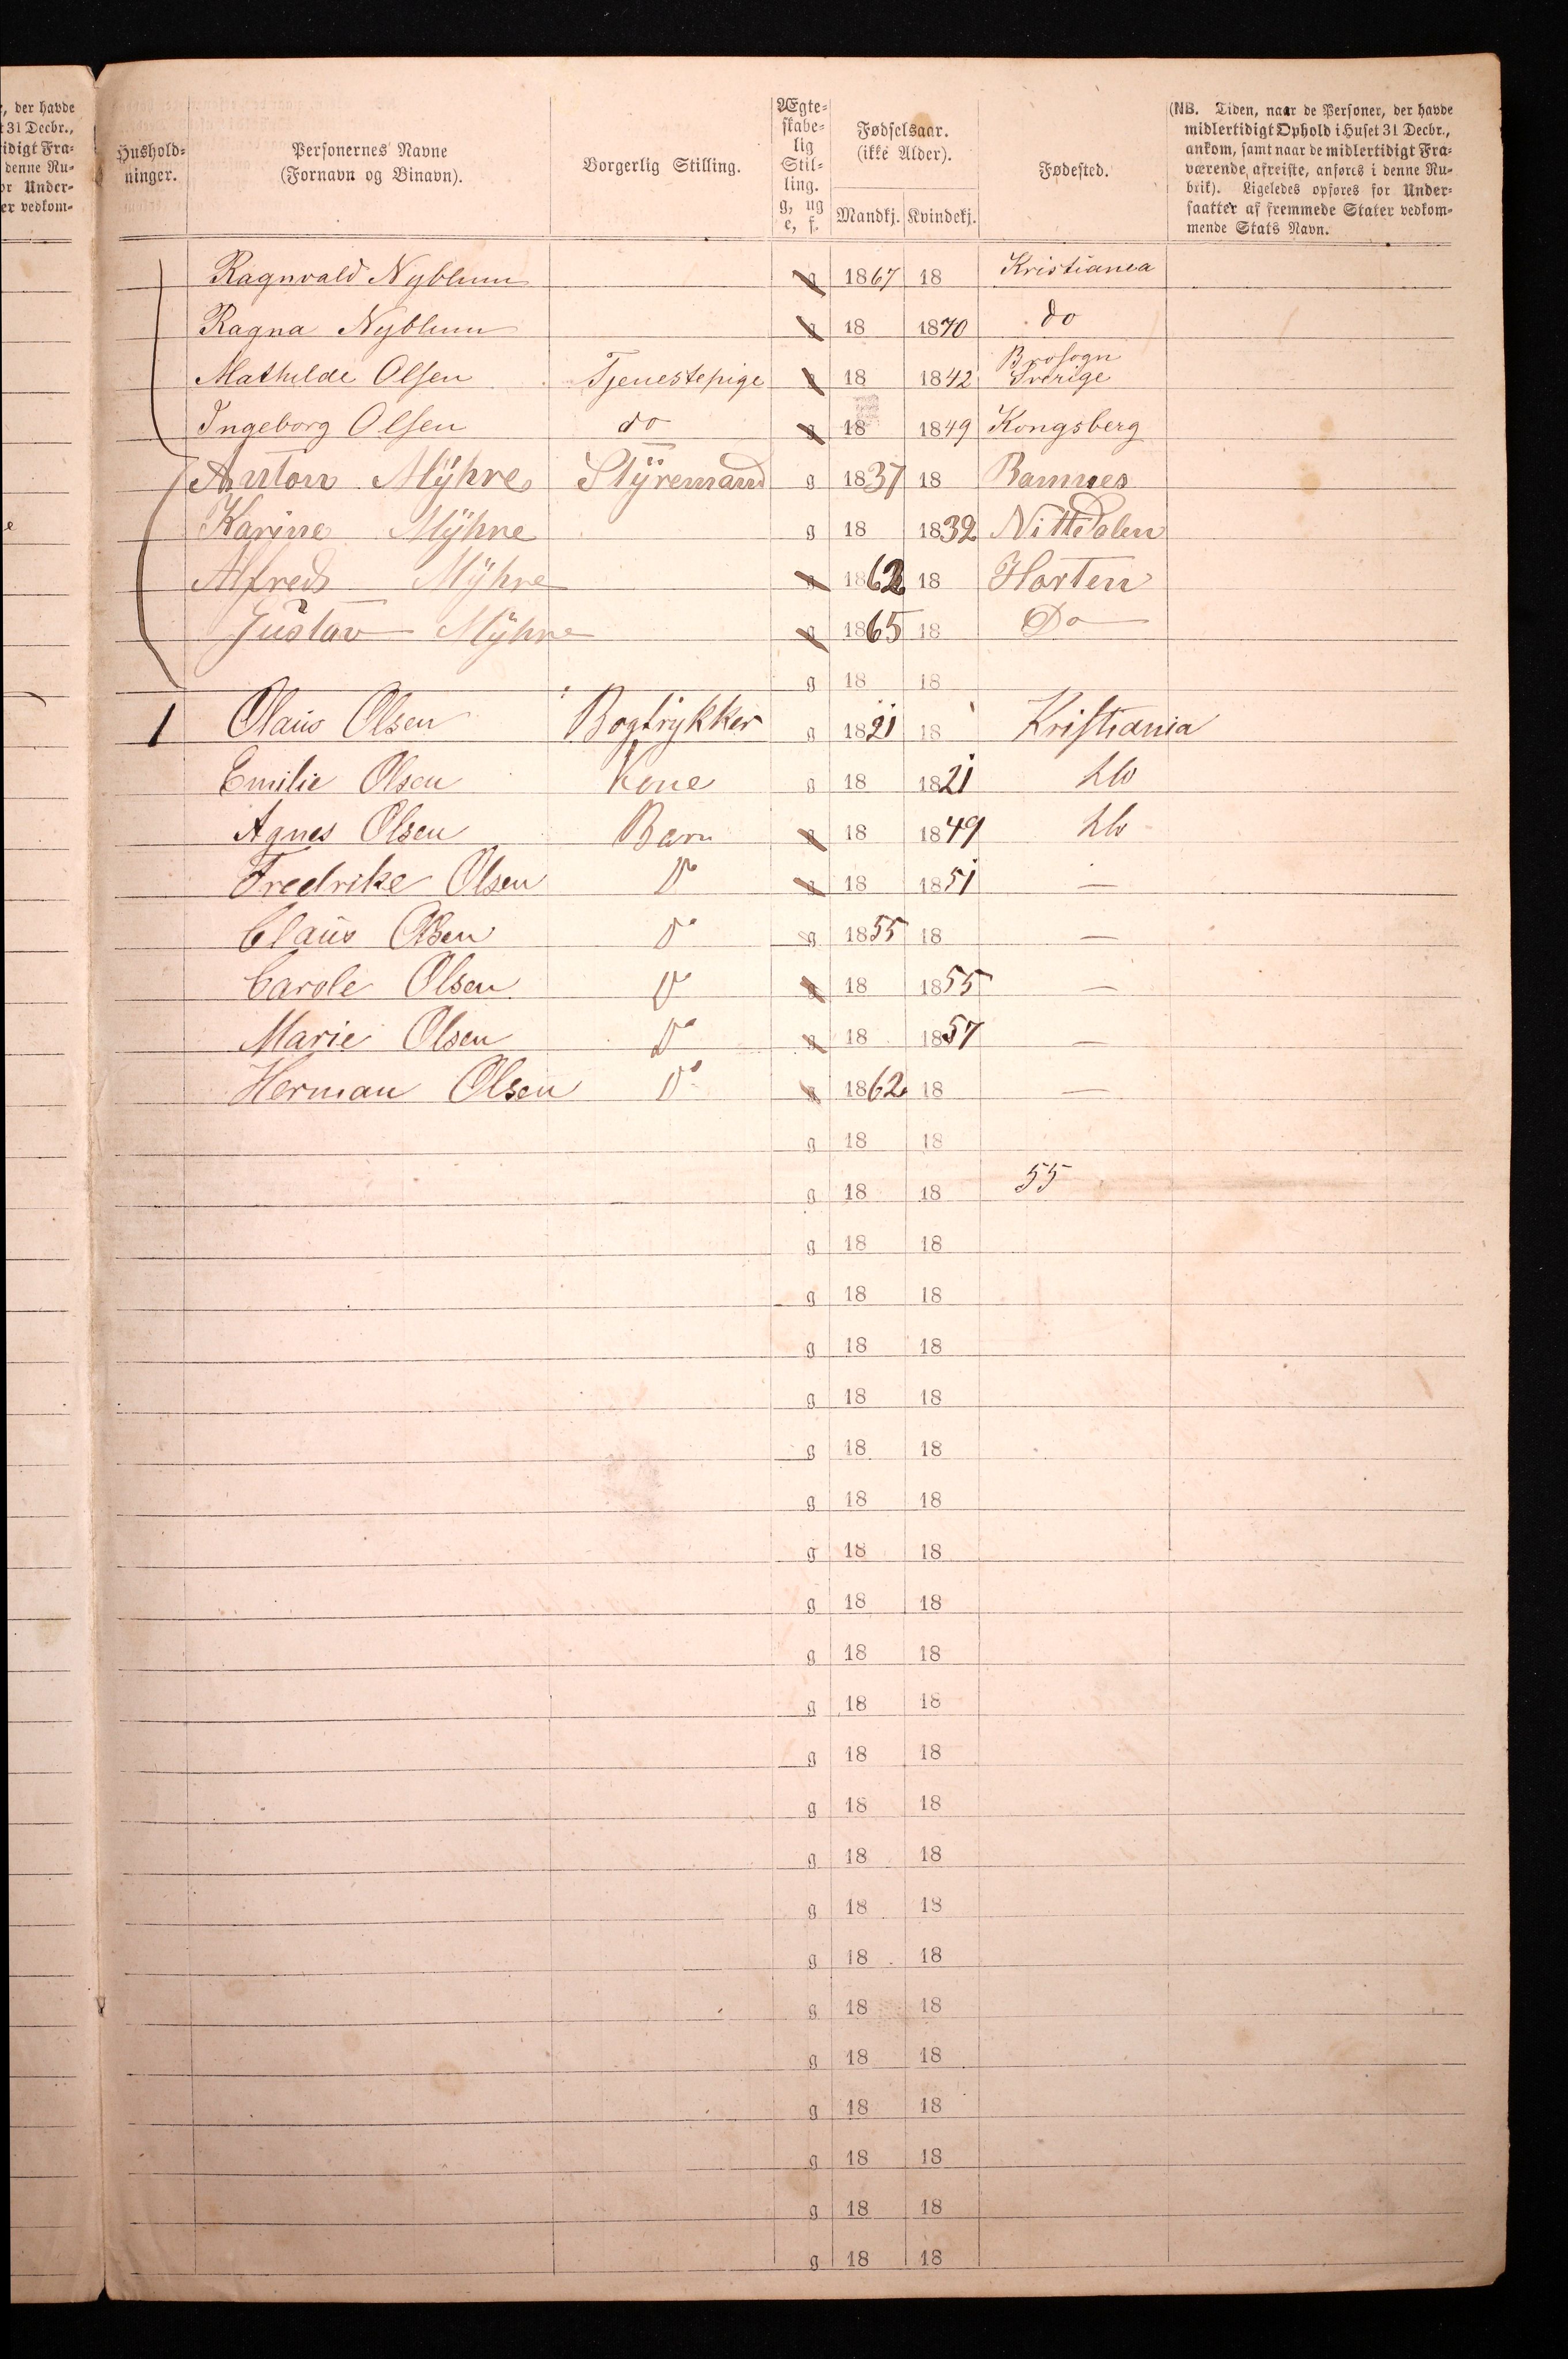 r, der havde
t 31 Decbr.,
idigt Fra-
denne Ru-
or Under-
er vedkom-
e
Hushold-
ninger.
Personernes Navne
(Fornavn og Binavn).
Borgerlig Stilling.
Ægte-
skabe-
lig
Stil-
ling.
g, ug
e, f.
Fødselsaar.
(ikke Alder).
Mandkj. Kvindekj.
Fødested.
(NB. Tiden, naar de Personer, der havde
midlertidigt Ophold i Huset 31 Decbr.,
ankom, samt naar de midlertidigt Fra-
værende afreiste, anføres i denne Ru-
brik). Ligeledes opføres for Under-
saatter af fremmede Stater vedkom-
mende Stats Navn.
Ragnvald Nyblum g 1867 18 Kristiania
Ragna Nyblum g 18 1870 do
Mathilde Olsen Tjenestepige g 18 1842 Brosogn Sverige
Ingeborg Olsen do g 18 1849 Kongsberg
Anton Mÿhre Stÿremand g 1837 18
Karine Mÿhre g 18 1832 Nittedalen
Alfred Mÿhre g 1862 18 Horten
Gustav Mÿhre g 1865 18 Do
g 18 18
1 Olaus Olsen Bogtrykker g 1821 18 Kristiania
Emilie Olsen Kone g 18 1821
Agnes Olsen Barn g 18 1849
Fredrike Olsen Do g 18 1851 —
Claus Olsen Do g 1855 18 —
Carole Olsen Do g 18 1855 —
Marie Olsen Do g 18 1857 —
Herman Olsen Do g 1862 18 —
g 18 18
g 18 18 55
g 18 18
g 18 18
g 18 18
g 18 18
g 18 18
g 18 18
g 18 18
g 18 18
g 18 18
g 18 18
g 18 18
g 18 18
g 18 18
g 18 18
g 18 18
g 18 18
g 18 18
g 18 18
g 18 18
g 18 18
g 18 18